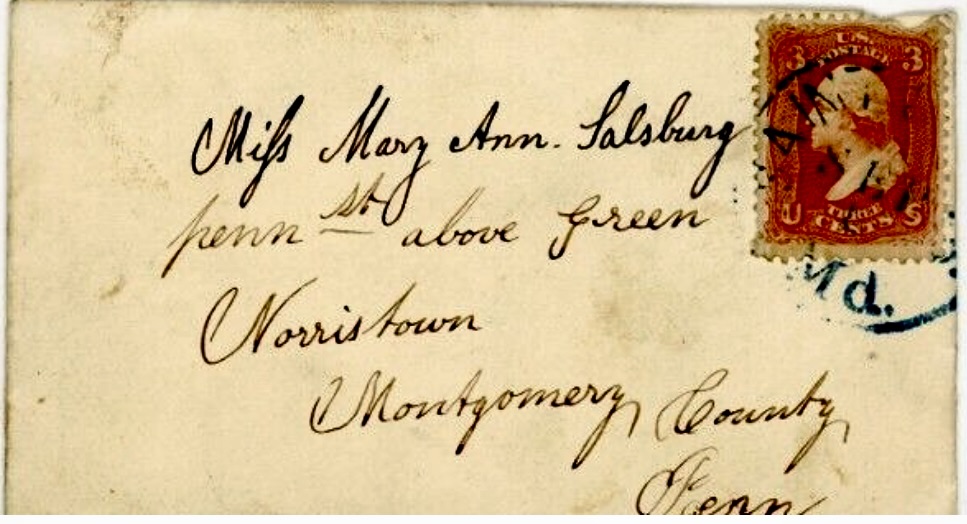 Miss Mary Ann. Salsburg
penn st above Green
Norristown
Montgomery County
Penn
U.S.
POSTAGE
3 3
U THREE S
CENTS
Md.